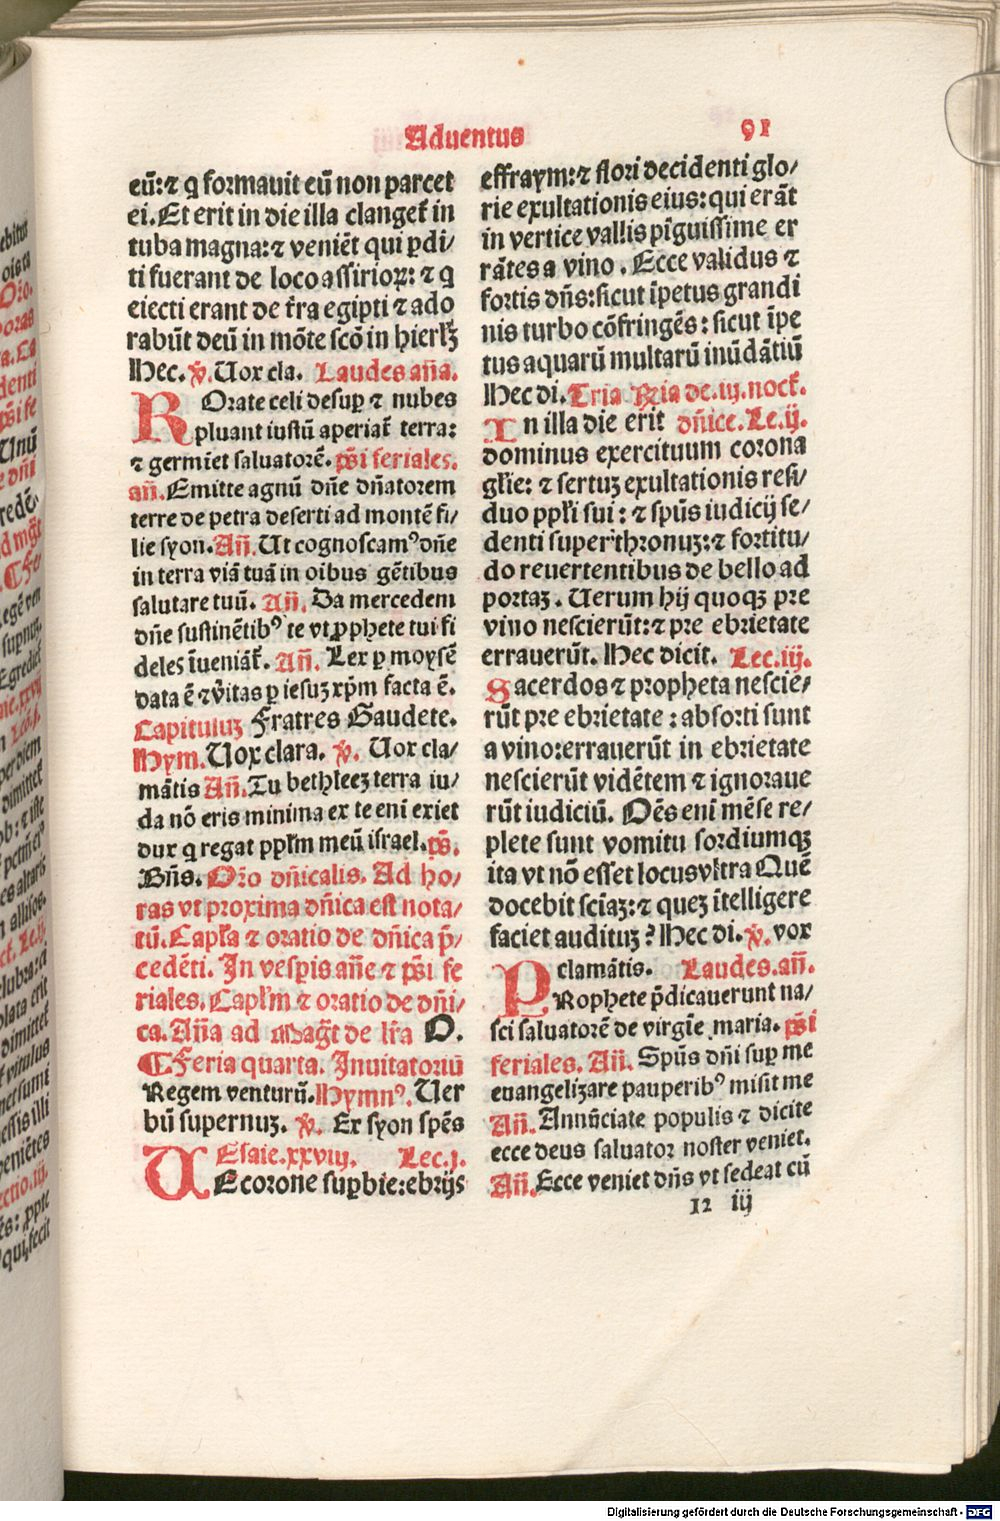 Aduentus
91
eū:⁊ q̄ formauit eū non parcet
ei. Et erit in die illa clanget̄ in
tuba magna:⁊ veniēt qui ꝑdi/
ti fuerant de loco assirioꝝ: ⁊ q̄
eiecti erant de t̄ra egipti ⁊ ado
rabūt deū in mōte scō in hierl̄ꝫ
Hec. ℣. Uox cla. Laudes an̄a.
ROrate celi desuꝑ ⁊ nubes
pluant iustū aperiat̄ terra:
⁊ germīet saluatorē. ps̄i feriales.
an̄. Emitte agnū dn̄e dn̄atorem
terre de petra deserti ad montē fi/
lie syon. An̄. Ut cognoscamꝰ dn̄e
in terra viā tuā in oībus gētibus
salutare tuū. An̄. Da mercedem
dn̄e sustinētibꝰ te vt ꝓphete tui fi
deles īueniāt̄. An̄. Lex ꝑ moysē
data ē ⁊ v̄itas ꝑ iesuꝫ xp̄m facta ē.
Capituluꝫ Fratres Gaudete.
Hym. Uox clara. ℣. Uox cla/
mātis An̄. Tu bethleeꝫ terra iu/
da nō eris minima ex te eni exiet
dux q̄ regat ppl̄m meū israel. ps̄.
Bn̄s. Or̄o dn̄icalis. Ad ho/
ras vt proxima dn̄ica est nota/
tū. Capl̄a ⁊ oratio de dn̄ica p̄/
cedēti. In vesꝑis an̄e ⁊ ps̄i fe
riales. Capl̄m ⁊ oratio de dn̄i/
ca. An̄a ad Magt̄ de lr̄a O.
¶ Feria quarta. Inuitatoriū
Regem venturū. Hymnꝰ. Uer
bū supernuꝫ. ℣. Ex syon spēs
Esaie.xxviij. Lec.j.
UE corone suꝑbie:ebrijs
effraym:⁊ flori decidenti glo/
rie exultationis eius: qui erāt
in vertice vallis pīguissime er
rātes a vino. Ecce validus ⁊
fortis dn̄s:sicut īpetus grandi
nis turbo cōfringēs: sicut īpe
tus aquarū multarū inūdātiū
Hec di. Tria Ria de.iij.noct̄.
In illa die erit dn̄ice. Le.ij.
dominus exercituum corona
gl̄ie: ⁊ sertuꝫ exultationis resi/
duo ppl̄i sui: ⁊ spūs iudicij se/
denti super thronuꝫ:⁊ fortitu/
do reuertentibus de bello ad
portaꝫ. Uerum hij quoqꝫ pre
vino nescierūt:⁊ pre ebrietate
errauerūt. Hec dicit. Lec.iij.
Sacerdos ⁊ propheta nescie/
rūt pre ebrietate: absorti sunt
a vino:errauerūt in ebrietate
nescierūt vidētem ⁊ ignoraue
rūt iudiciū. Oēs eni mēse re/
plete sunt vomitu sordiumqꝫ
ita vt nō esset locus vltra Quē
docebit sciāꝫ:⁊ queꝫ ītelligere
faciet audituꝫ? Hec di. ℣. vox
clamātis. Laudes. an̄.
PRophete p̄dicauerunt na/
sci saluatorē de virgīe maria. ps̄i
feriales. An̄. Spūs dn̄i suꝑ me
euangelizare pauperibꝰ misit me
An̄. Annūciate populis ⁊ dicite
ecce deus saluator noster veniet.
An̄. Ecce veniet dn̄s vt sedeat cū
12 iij
Digitalisierung gefördert durch die Deutsche Forschungsgemeinschaft - DFG